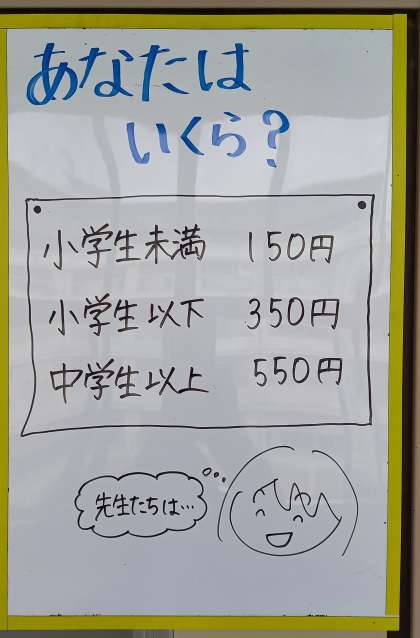 あなたは
いくら?
小学生未満 150円
小学生以下 350円
中学生以上 550円
先生たちは…